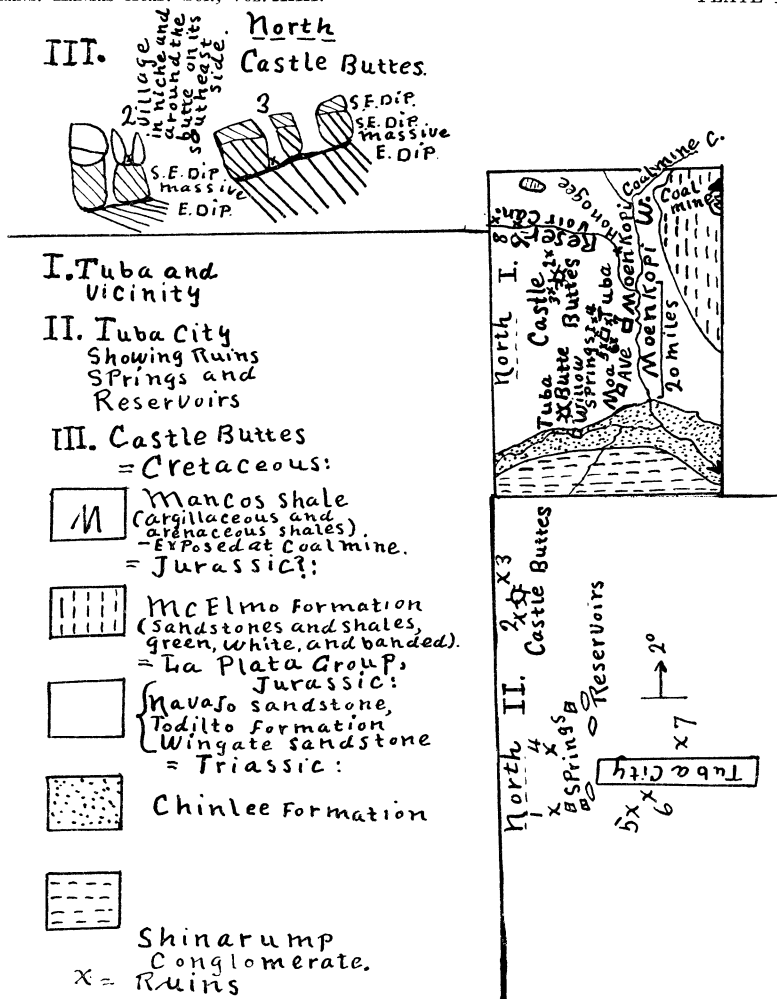 PLATE
III.
North
Castle Buttes.
Village
in niche and
around the
butte on its
southeast
side.
2
S.E. Dip.
massive
E. Dip.
3
S.E. Dip.
S.E. Dip.
massive
E. Dip.
I. Tuba and
Vicinity
II. Tuba City
Showing Ruins
Springs and
Reservoirs
III. Castle Buttes
= Cretaceous:
M
Mancos Shale
(argillaceous and
arenaceous shales).
-Exposed at Coalmine.
= Jurassic?:
McElmo Formation
(Sandstones and shales,
green, white, and banded).
= La Plata Group,
Jurassic:
Navajo sandstone,
Todilto Formation
Wingate sandstone
= Triassic:
Chinlee Formation
Shinarump
Conglomerate.
x = Ruins
North I.
8 8
Reservoir Can.
Honogee
Coalmine C.
Coal
mine
Moenkopi W.
Castle
Buttes
3x 2x
Tuba
Butte
Willow
Springs
Moa Ave
Tuba
Moenkopi
20 miles
North II.
2 x x 3
Castle Buttes
Reservoirs
Springs
1 x
4 x
2°
x 7
Tuba City
5 x x
6